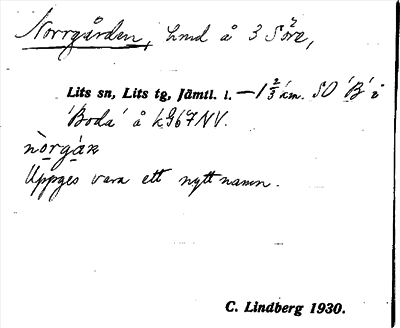 Norrgården, Lmd å 3 Söre,
Lits sn, Lits tg, Jämtl. l. — 1 2/3 km. SO 'B' i
'Boda' å kg67NV.
nòrgán
Uppges vara ett nytt namn.
C. Lindberg 1930.